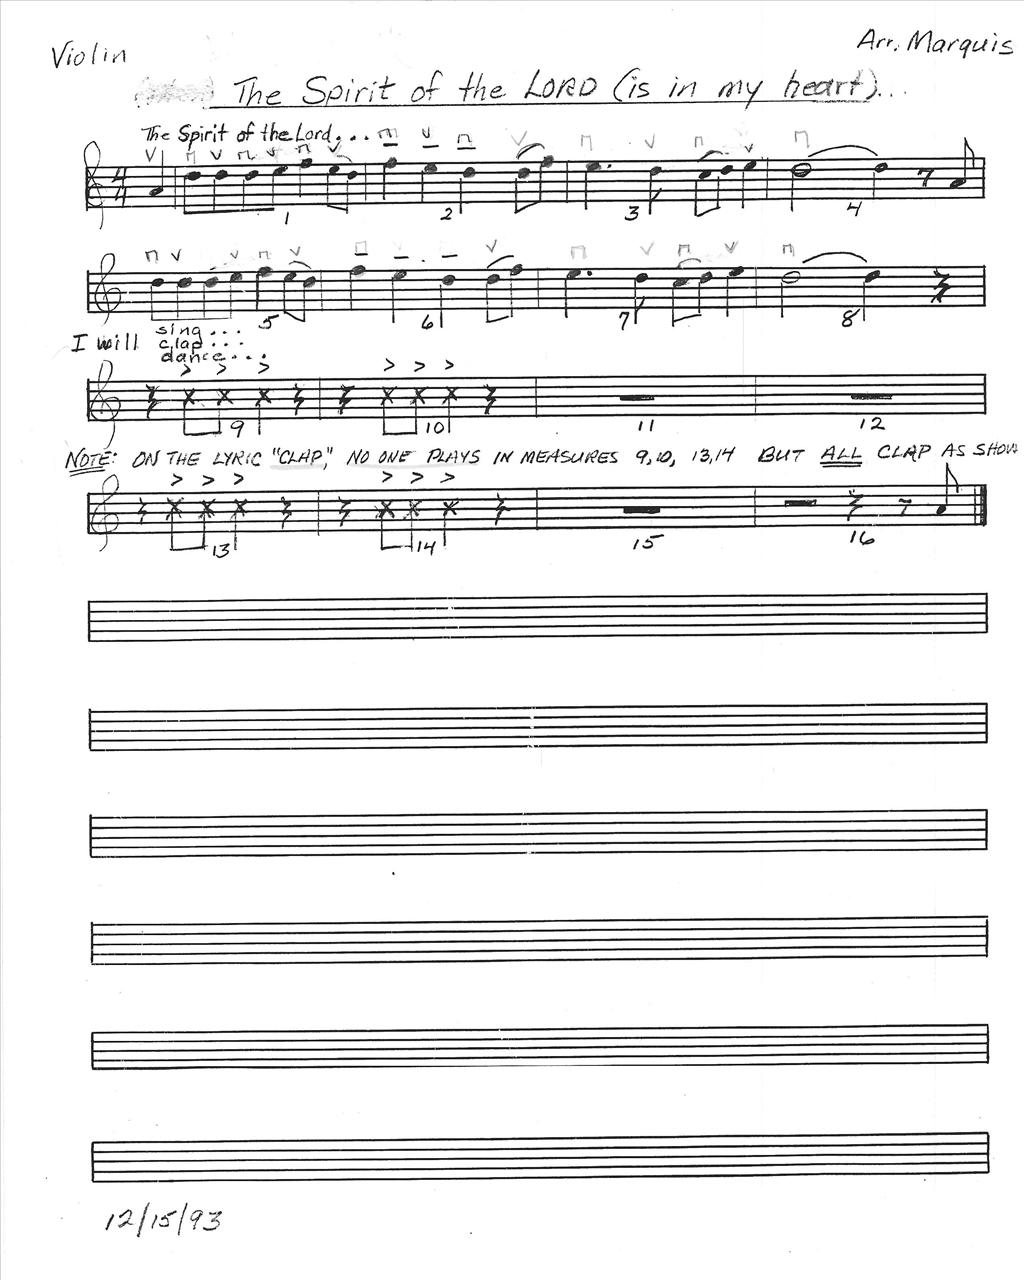 Violin
Arr. Marquis
The Spirit of the LORD (is in my heart)...
The Spirit of the Lord...
4
4
1 2 3 4
5 6 7 8
I will sing...
clap...
dance...
9 10 11 12
NOTE: ON THE LYRIC "CLAP," NO ONE PLAYS IN MEASURES 9, 10, 13, 14 BUT ALL CLAP AS SHOW
13 14 15 16
12/15/93